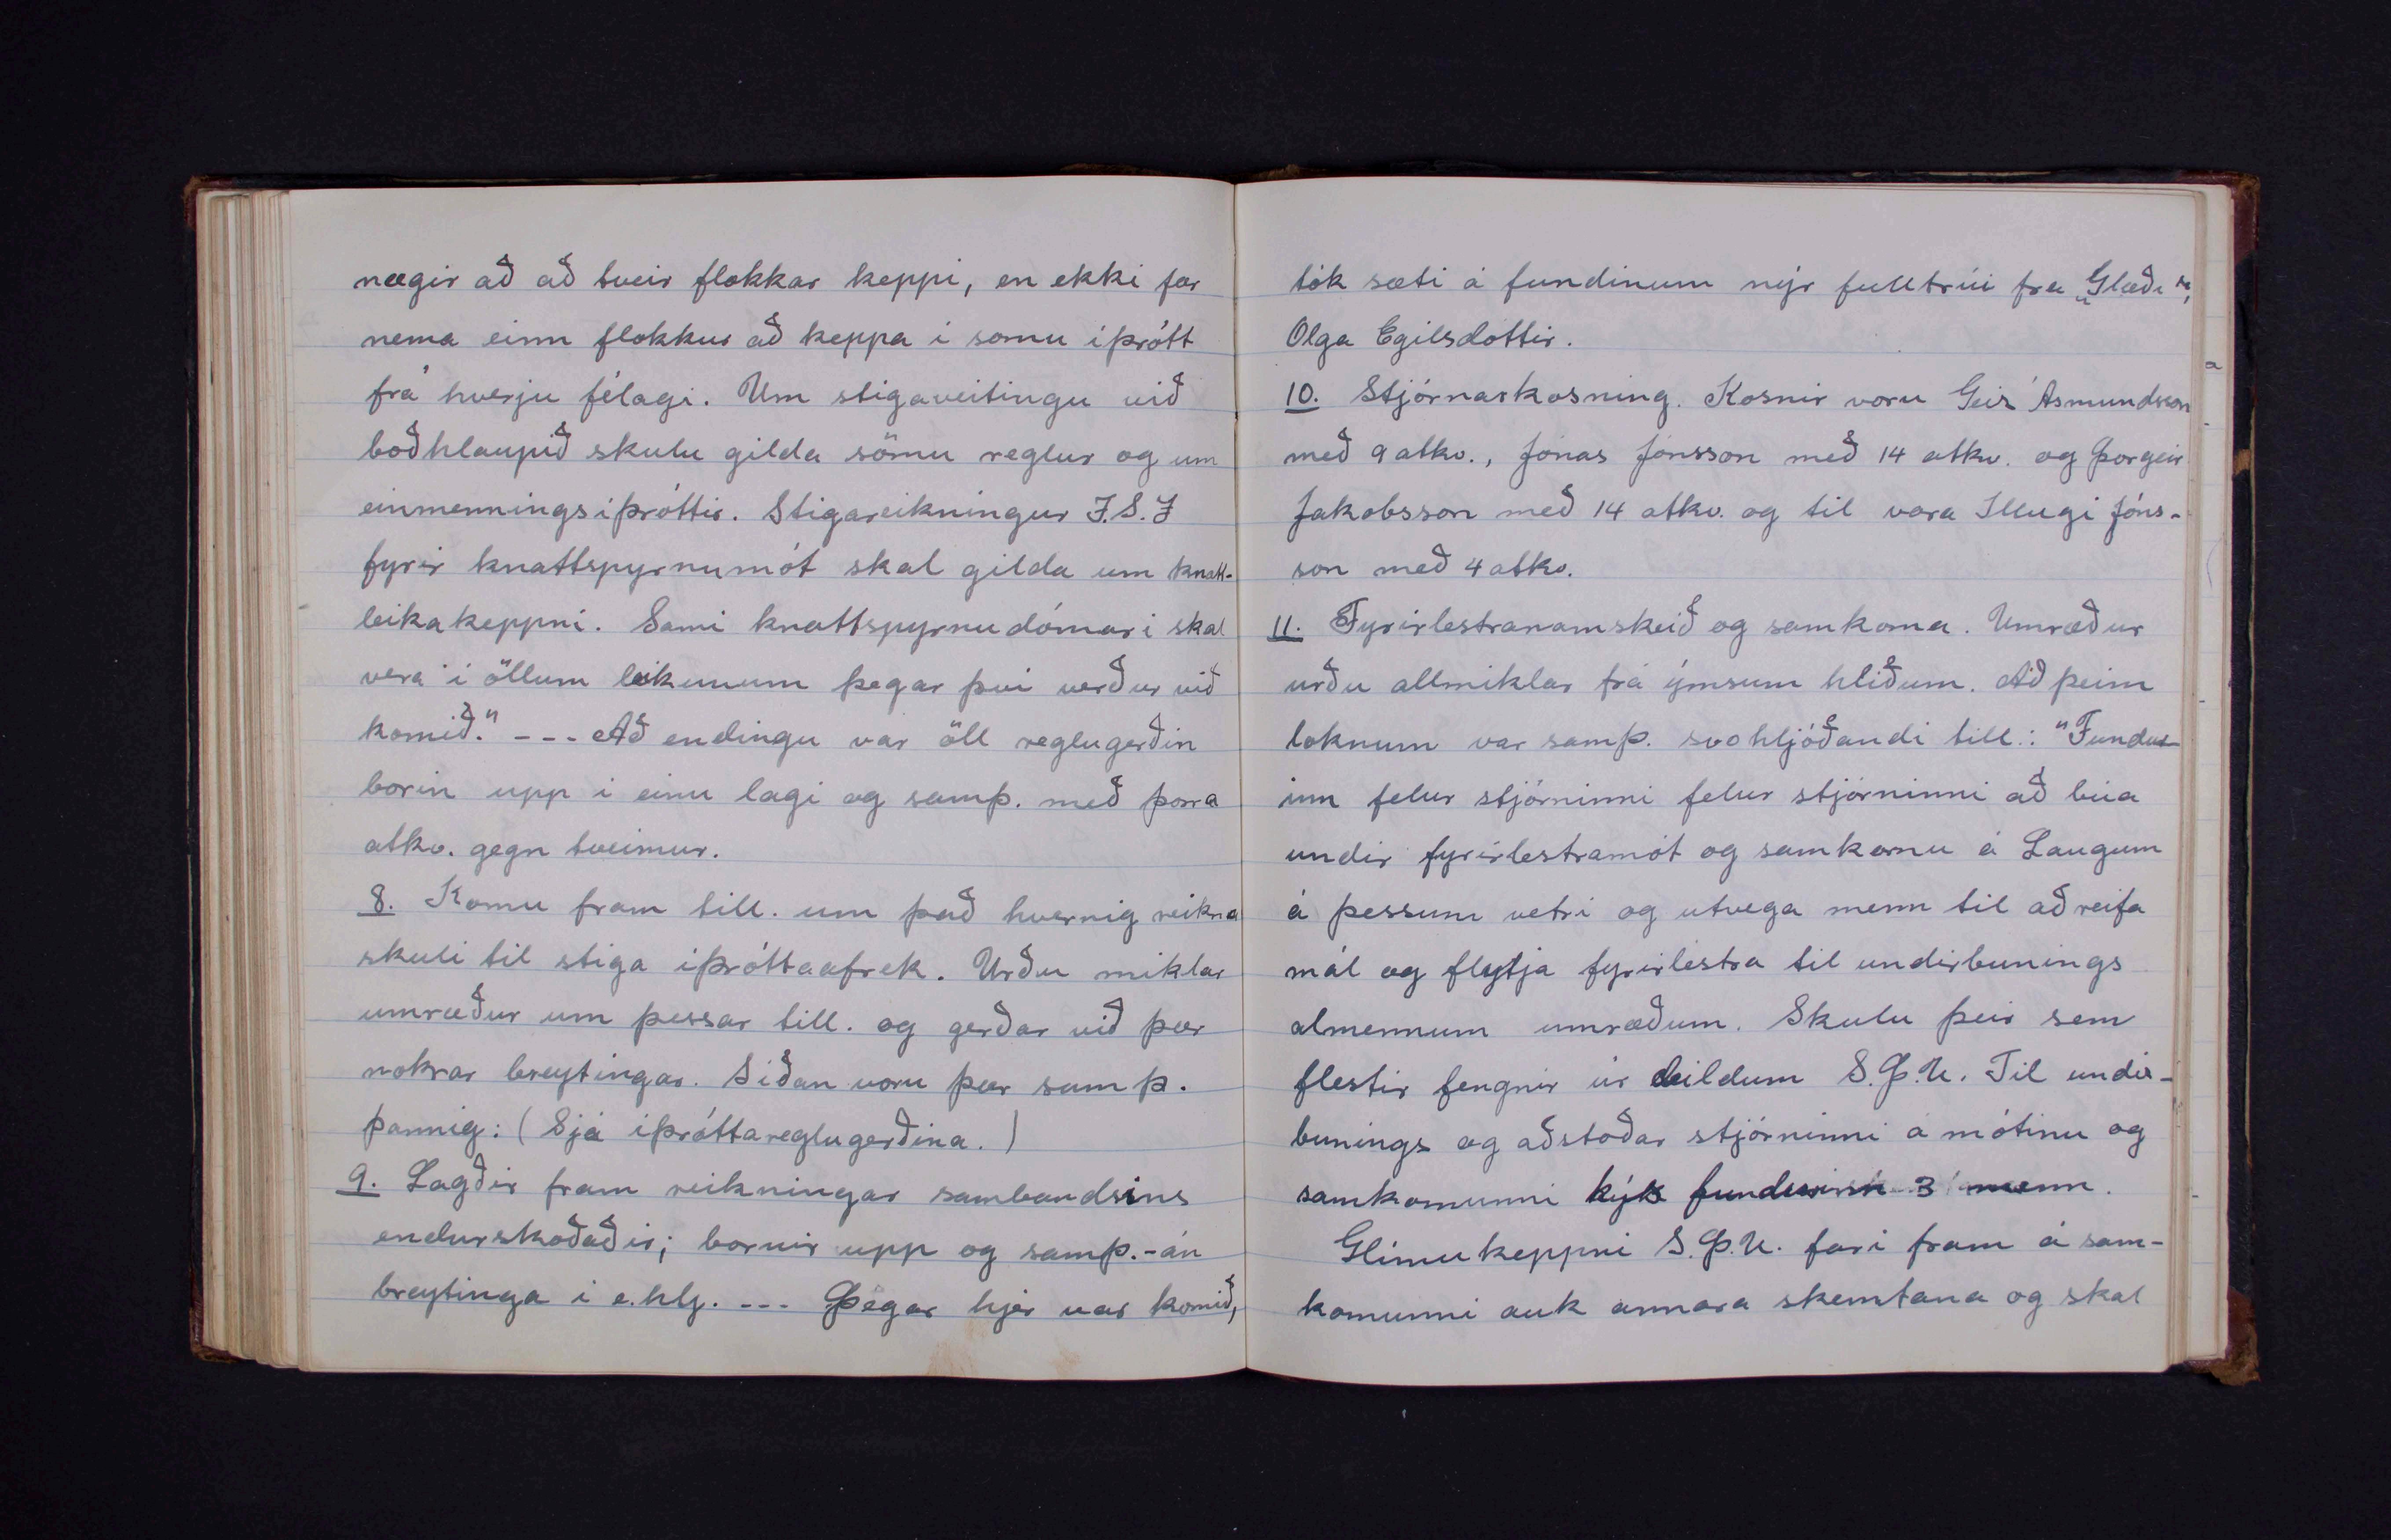 nægir að að tveir flokkar keppi, en ekki fær
nema einn flokkur að keppa í sömu íþrótt
frá hverju félagi. Um stigaveitingu við
boðhlaupið skulu gilda sömu reglur og um
einmenningsíþróttir. Stigareikningur Í.S.Í
fyrir knattspyrnumót skal gilda um knatt-
leikakeppni. Sami knattspyrnudómari skal
vera í öllum leikunum þegar því verður við
komið." --- Að endingu var öll reglugerðin
borin upp í einu lagi og samþ. með þorra
atkv. gegn tveimur.
8. Komu fram till. um það hvernig reikna
skuli til stiga íþróttaafrek. Urðu miklar
umræður um þessar till. og gerðar við þær
nokrar breytingar. Síðan voru þær samþ.
þannig: (Sjá íþróttareglugerðina.)
9. Lagðir fram reikningar sambandsins
endurskoðaðir; bornir upp og samþ. - án
breytinga í e.hlj. --- Þegar hjer var komið,
tók sæti á fundinum nýr fulltrúi frá „Glæði",
Olga Egilsdóttir.
10. Stjórnarkosning. Kosnir voru Geir Ásmundsson
með 9 atkv., Jónas Jónsson með 14 atkv. og Þorgeir
Jakobsson með 14 atkv. og til vara Illugi Jóns-
son með 4 atkv.
11. Fyrirlestranamskeið og samkoma. Umræður
urðu allmiklar frá ýmsum hliðum. Að þeim
loknum var samþ. svohljóðandi till.: "Fundur-
inn felur stjórninni felur stjórninni að búa
undir fyrirlestramót og samkomu á Laugum
á þessum vetri og utvega menn til að reifa
mál og flytja fyrirlestra til undirbunings
almennum umræðum. Skulu þeir sem
flestir fengnir úr deildum S.Þ.U. Til undir-
bunings og aðstoðar stjórninni á mótinu og
samkomunni kýs fundurinn 3 menn.
Glímukeppni S.Þ.U. fari fram á sam-
komunni auk annara skemtana og skal